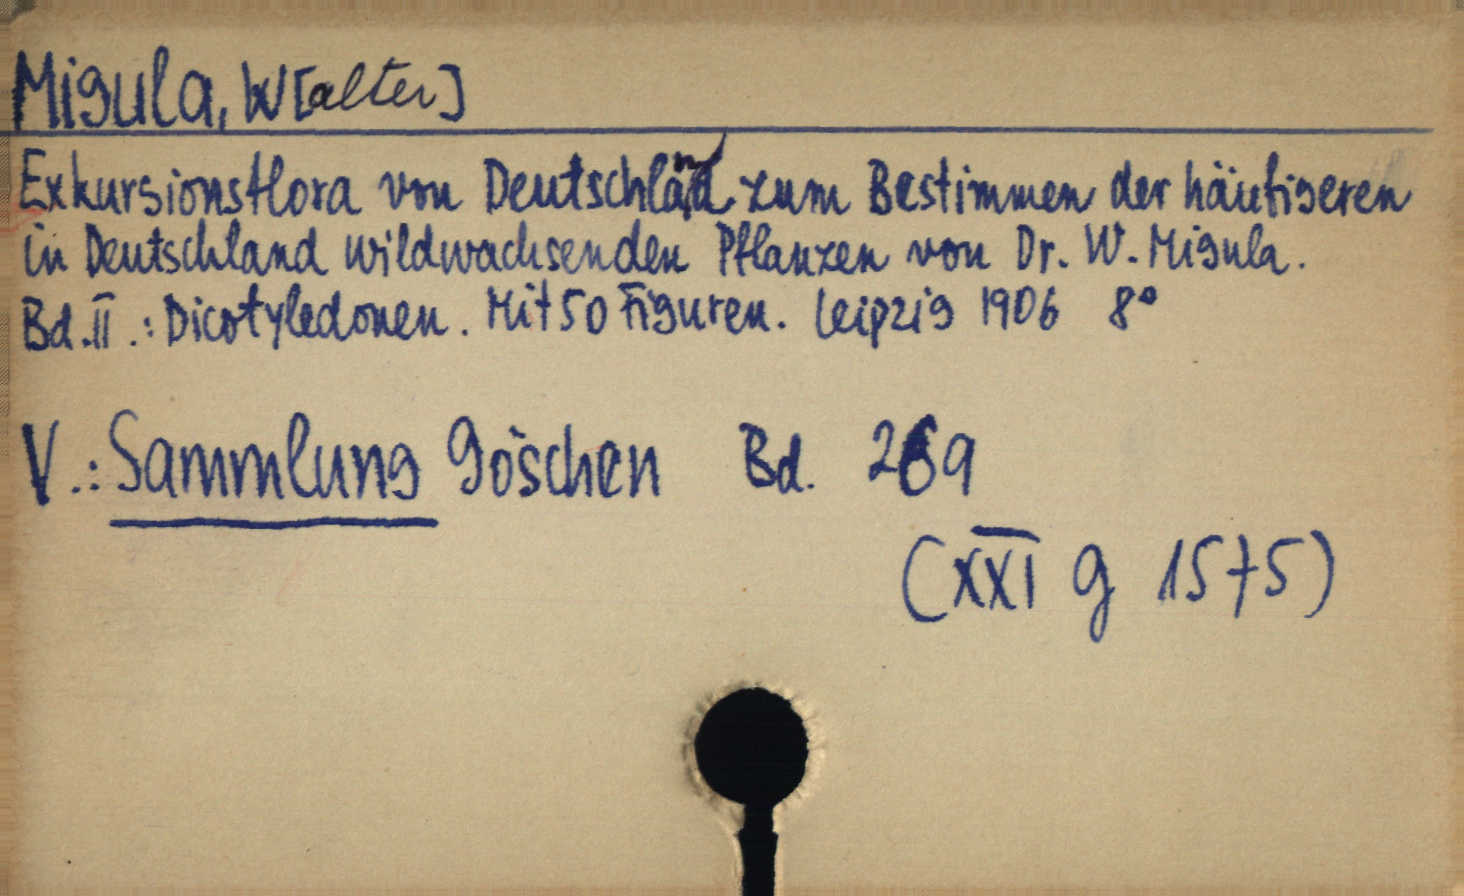 Migula, W[alter]
Exkursionsflora von Deutschland zum Bestimmen der häufigeren
in Deutschland wildwachsenden Pflanzen von Dr. W. Migula.
Bd. II.: Dicotyledonen. Mit 50 Figuren. Leipzig 1906 8°
V.: Sammlung Göschen Bd. 269
(XXI g 1575)